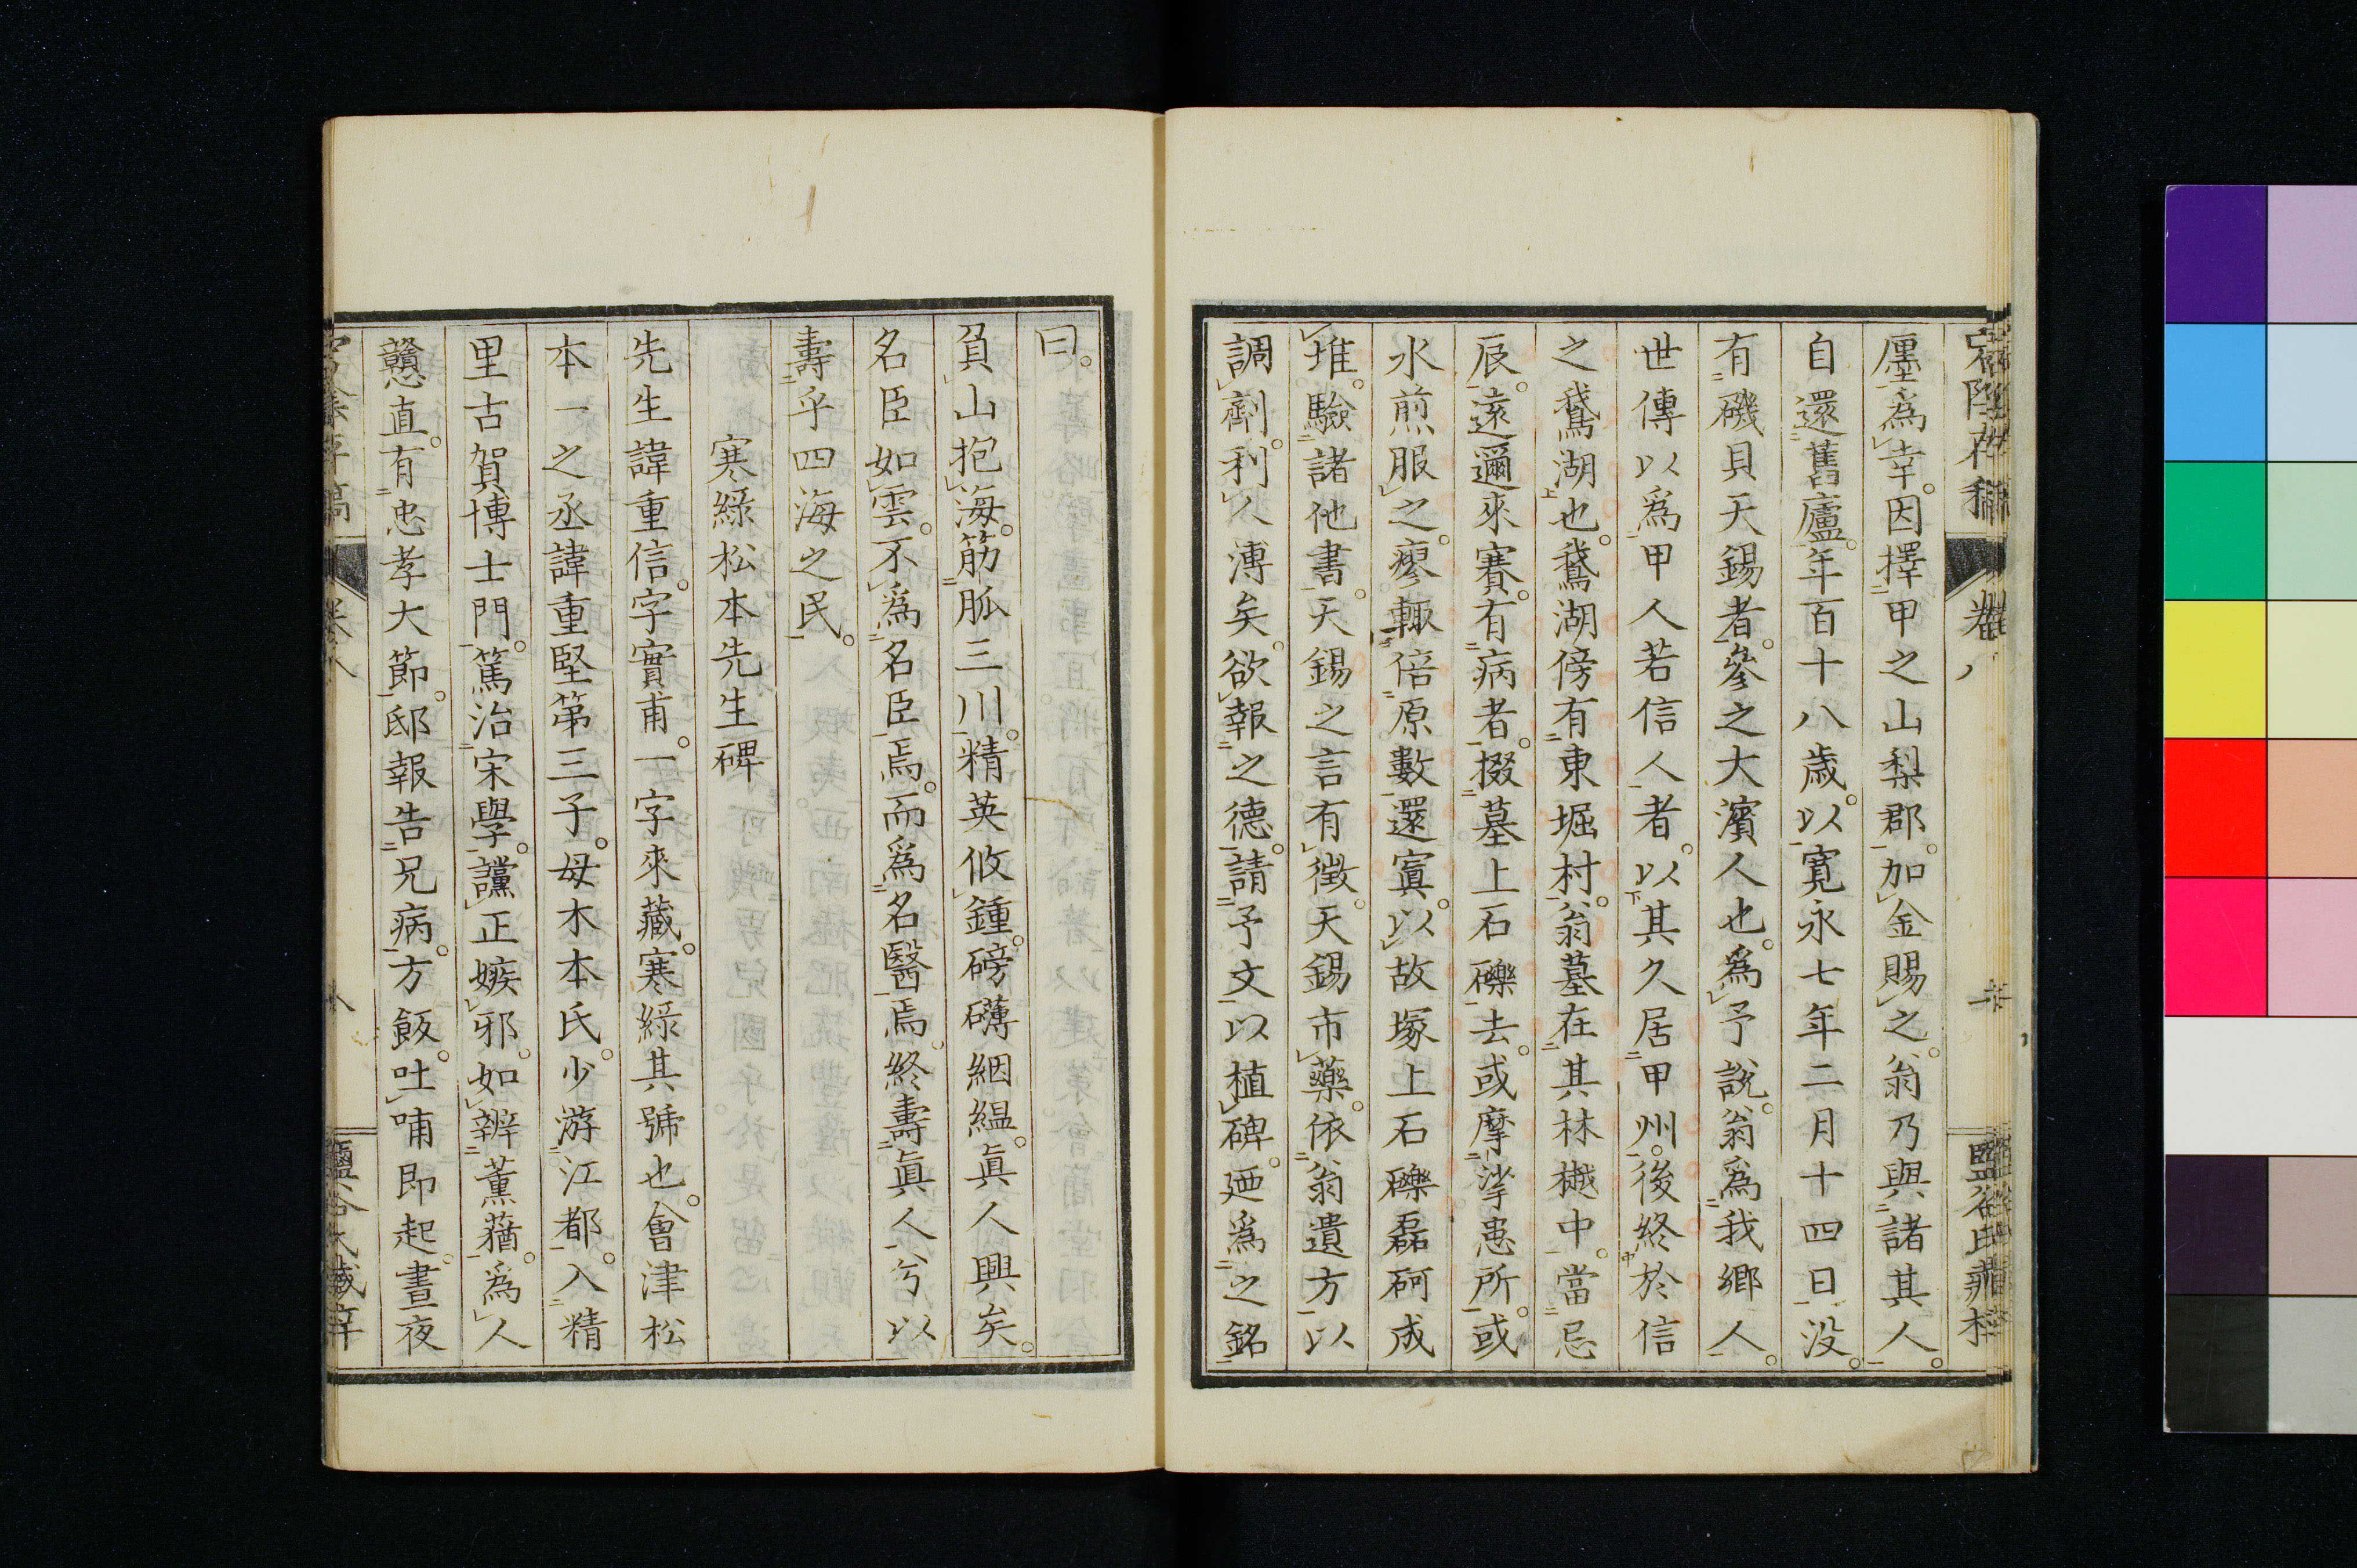 廛爲幸。因擇甲之山梨郡。加金賜之。翁乃與諸其人。
自還舊廬。年百十八歳。以寛永七年二月十四日没。
有磯貝天錫者。參之大濱人也。爲予説。翁爲我郷人。
世傳以爲甲人若信人者。以其久居甲州。後終於信
之鵞湖也。鵞湖傍有東堀村。翁墓在其林樾中。當忌
辰。遠邇來賽。有病者。掇墓上石礫去。或摩挲患所。或
水煎服之。瘳輙倍原數還寘。以故塚上石礫磊砢成
堆。驗諸他書。天錫之言有徴。天錫市藥。依翁遺方以
調劑。利人溥矣。欲報之德。請予文以植碑。廼爲之銘
曰。
負山抱海。筋脈三川。精英攸鍾。磅礴絪縕。眞人興矣。
名臣如雲。不爲名臣焉。而爲名醫焉。終壽眞人兮以
壽乎四海之民。
寒緑松本先生碑
先生諱重信。字實甫。一字來藏。寒緑其號也。會津松
本一之丞諱重堅第三子。母木本氏。少游江都。入精
里古賀博士門。篤治宋學。讜正嫉邪。如辨薫蕕。爲人
戇直。有忠孝大節。邸報告兄病。方飯。吐哺即起。晝夜